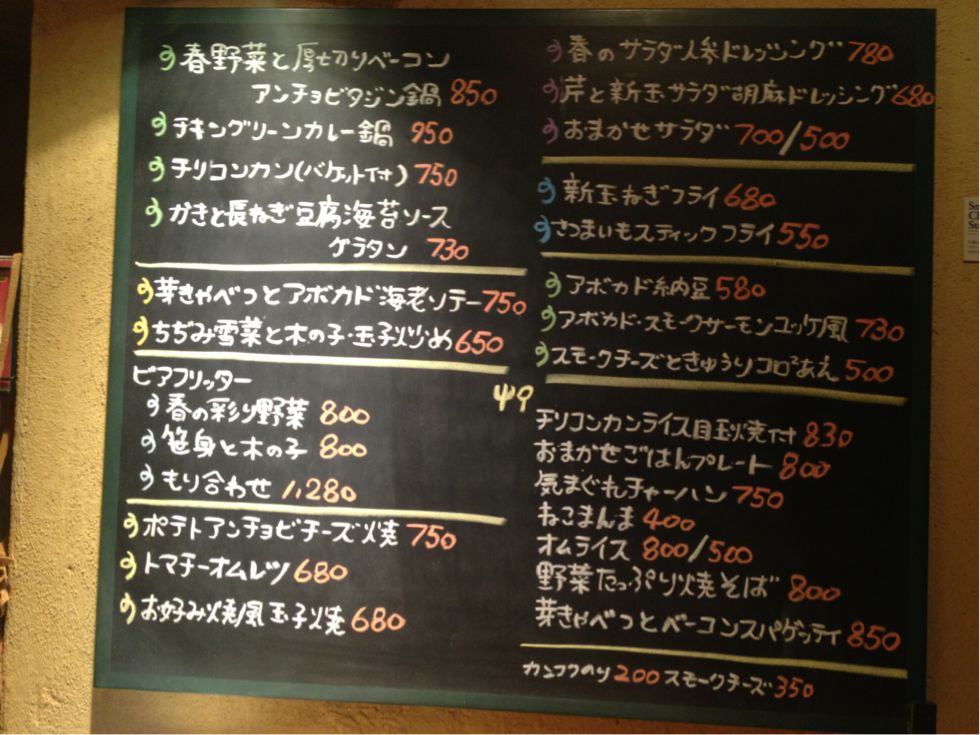 春野菜と厚切りベーコン
アンチョビタジン鍋 850
チキングリーンカレー鍋 950
チリコンカン(バケット付) 750
かきと長ねぎ豆腐海苔ソース
グラタン 730
芽きゃべつとアボカド海老ソテー 750
ちぢみ雪菜と木の子・玉子炒め 650
ビアフリッター
春の彩り野菜 800
笹身と木の子 800
もり合わせ 1,280
ポテトアンチョビチーズ焼 750
トマチーオムレツ 680
お好み焼風玉子焼 680
春のサラダ人参ドレッシング 780
芹と新玉サラダ胡麻ドレッシング 680
おまかせサラダ 700/500
新玉ねぎフライ 680
さつまいもスティックフライ 550
アボカド納豆 580
アボカド・スモークサーモンユッケ風 730
スモークチーズときゅうりコロコロあえ 500
チリコンカンライス目玉焼付 830
おまかせごはんプレート 800
気まぐれチャーハン 750
ねこまんま 400
オムライス 800/500
野菜たっぷり焼そば 800
芽きゃべつとベーコンスパゲッティ 850
カンフクのり 200 スモークチーズ 350